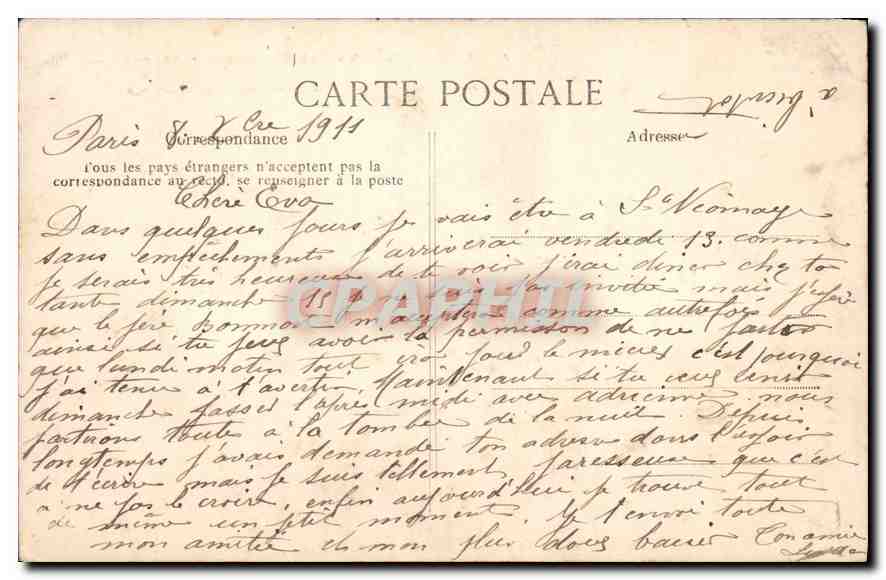 CARTE POSTALE
à Bientôt
Paris 8 Xbre 1911
Correspondance
Adresse
Tous les pays étrangers n'acceptent pas la
correspondance au recto, se renseigner à la poste
Chère Eva
Dans quelques jours je vais être à Ste Néomaye
sans empêchements j'arriverai vendredi 13. comme
je serais très heureuse de te voir j'irai diner chez ta
tante dimanche 15 je ne suis pas invitée mais j'espère
que le père Bonnon m'acceptera comme autrefois
ainsi si tu peus avoir la permission de ne partir
que lundi matin tout ira pour le mieux c'est pourquoi
j'ai tenue à t'avertir. Maintenant si tu veus venir
dimanche passer l'après midi avec adrienne nous
partirons toutes à la tombée de la nuit. Depuis
longtemps j'avais demandé ton adresse dans l'espoir
de t'écrire mais je suis tellement paresseuse que c'est
à ne pas le croire, enfin aujourd'hui je trouve tout
de même un p'tit moment. Je t'envoi toute
mon amitié et mon plus doux baiser Ton amie
CPAPHIL